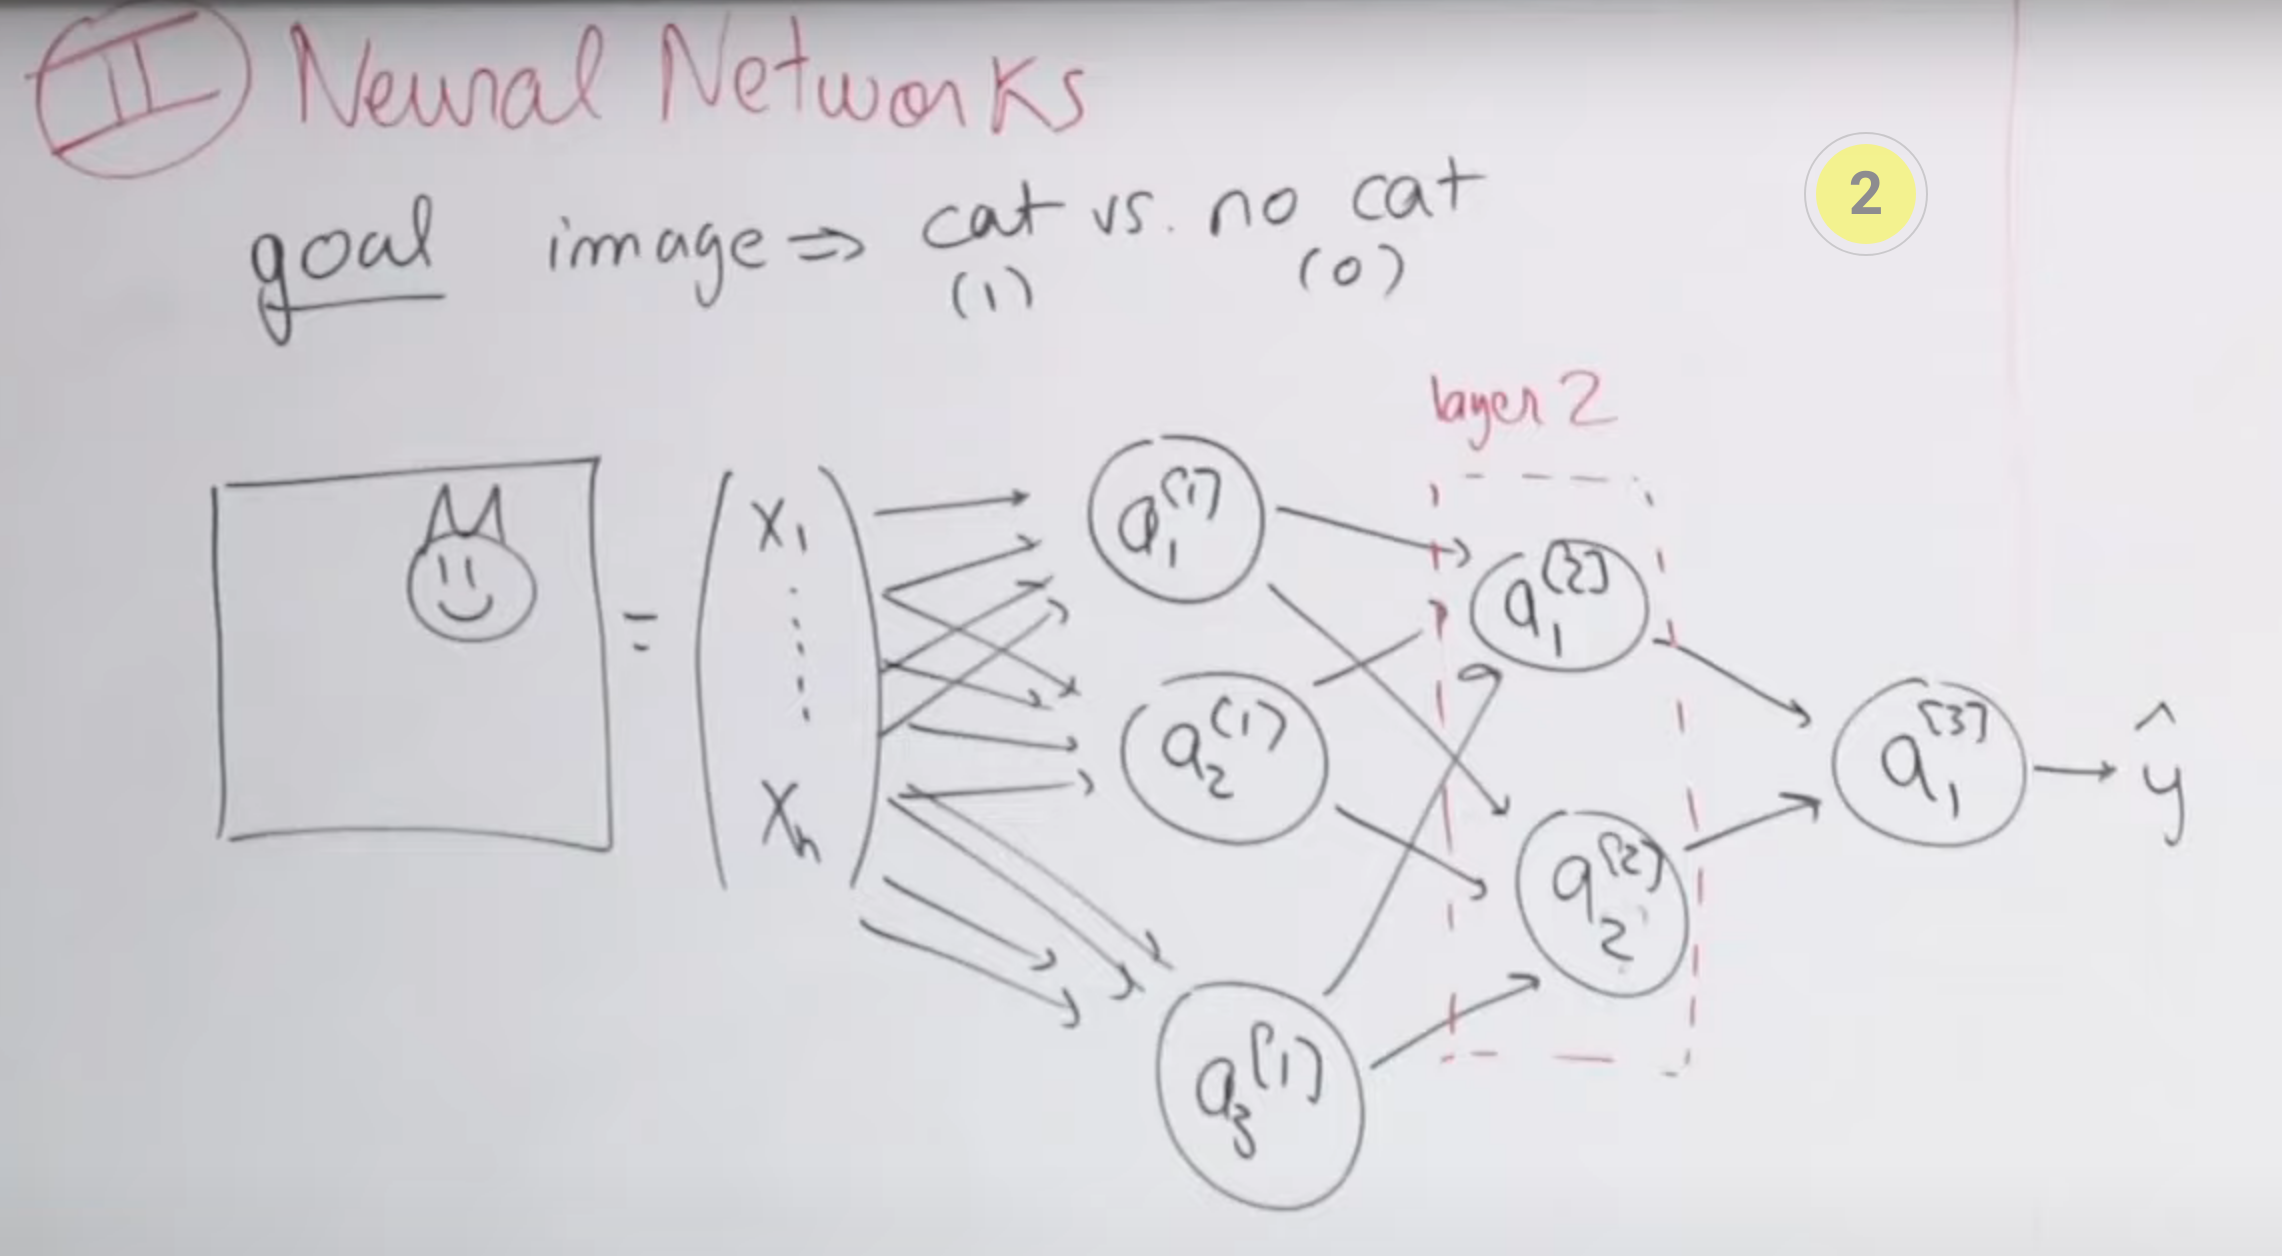 II Neural Networks
2
goal image ⇒ cat vs. no cat
(1) (0)
layer 2
x₁
⋮
xₙ
=
a₁^[1]
a₂^(1)
a₃^[1]
a₁^[2]
a₂^[2]
a₁^[3]
ŷ